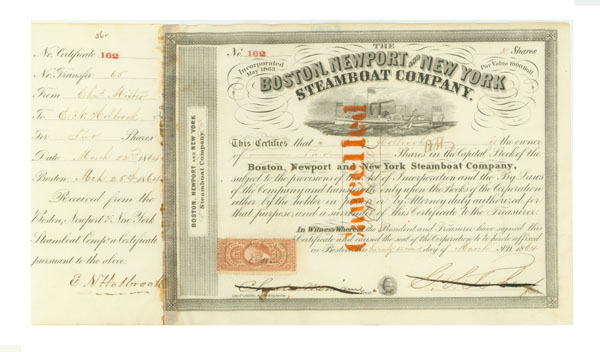 No. Certificate 162
No. Transfer 65
From
To E. N. Holbrook
For Shares
Date March 22d 1864
Boston, Mch 25th 1864
Received from the
Boston, Newport & New York
Steamboat Comp'y a Certificate
pursuant to the above.
E N Holbrook
BOSTON, NEWPORT AND NEW YORK
Steamboat Company.
No. 162
Shares
Incorporated
May 1863.
Par Value 1000 Doll.
THE
BOSTON, NEWPORT AND NEW YORK
STEAMBOAT COMPANY.
This Certifies that is the owner
of Shares in the Capital Stock of the
Boston, Newport and New York Steamboat Company,
subject to the provisions of the Act of Incorporation and the By Laws
of the Company and transferable only upon the Books of the Corporation
either by the holder in person or by Attorney duly authorized for
that purpose, and a surrender of this Certificate to the Treasurer.
In Witness Whereof the President and Treasurer have signed this
Certificate and caused the seal of the Corporation to be hereto affixed
in Boston this twenty second day of March A.D. 1864
Cancelled